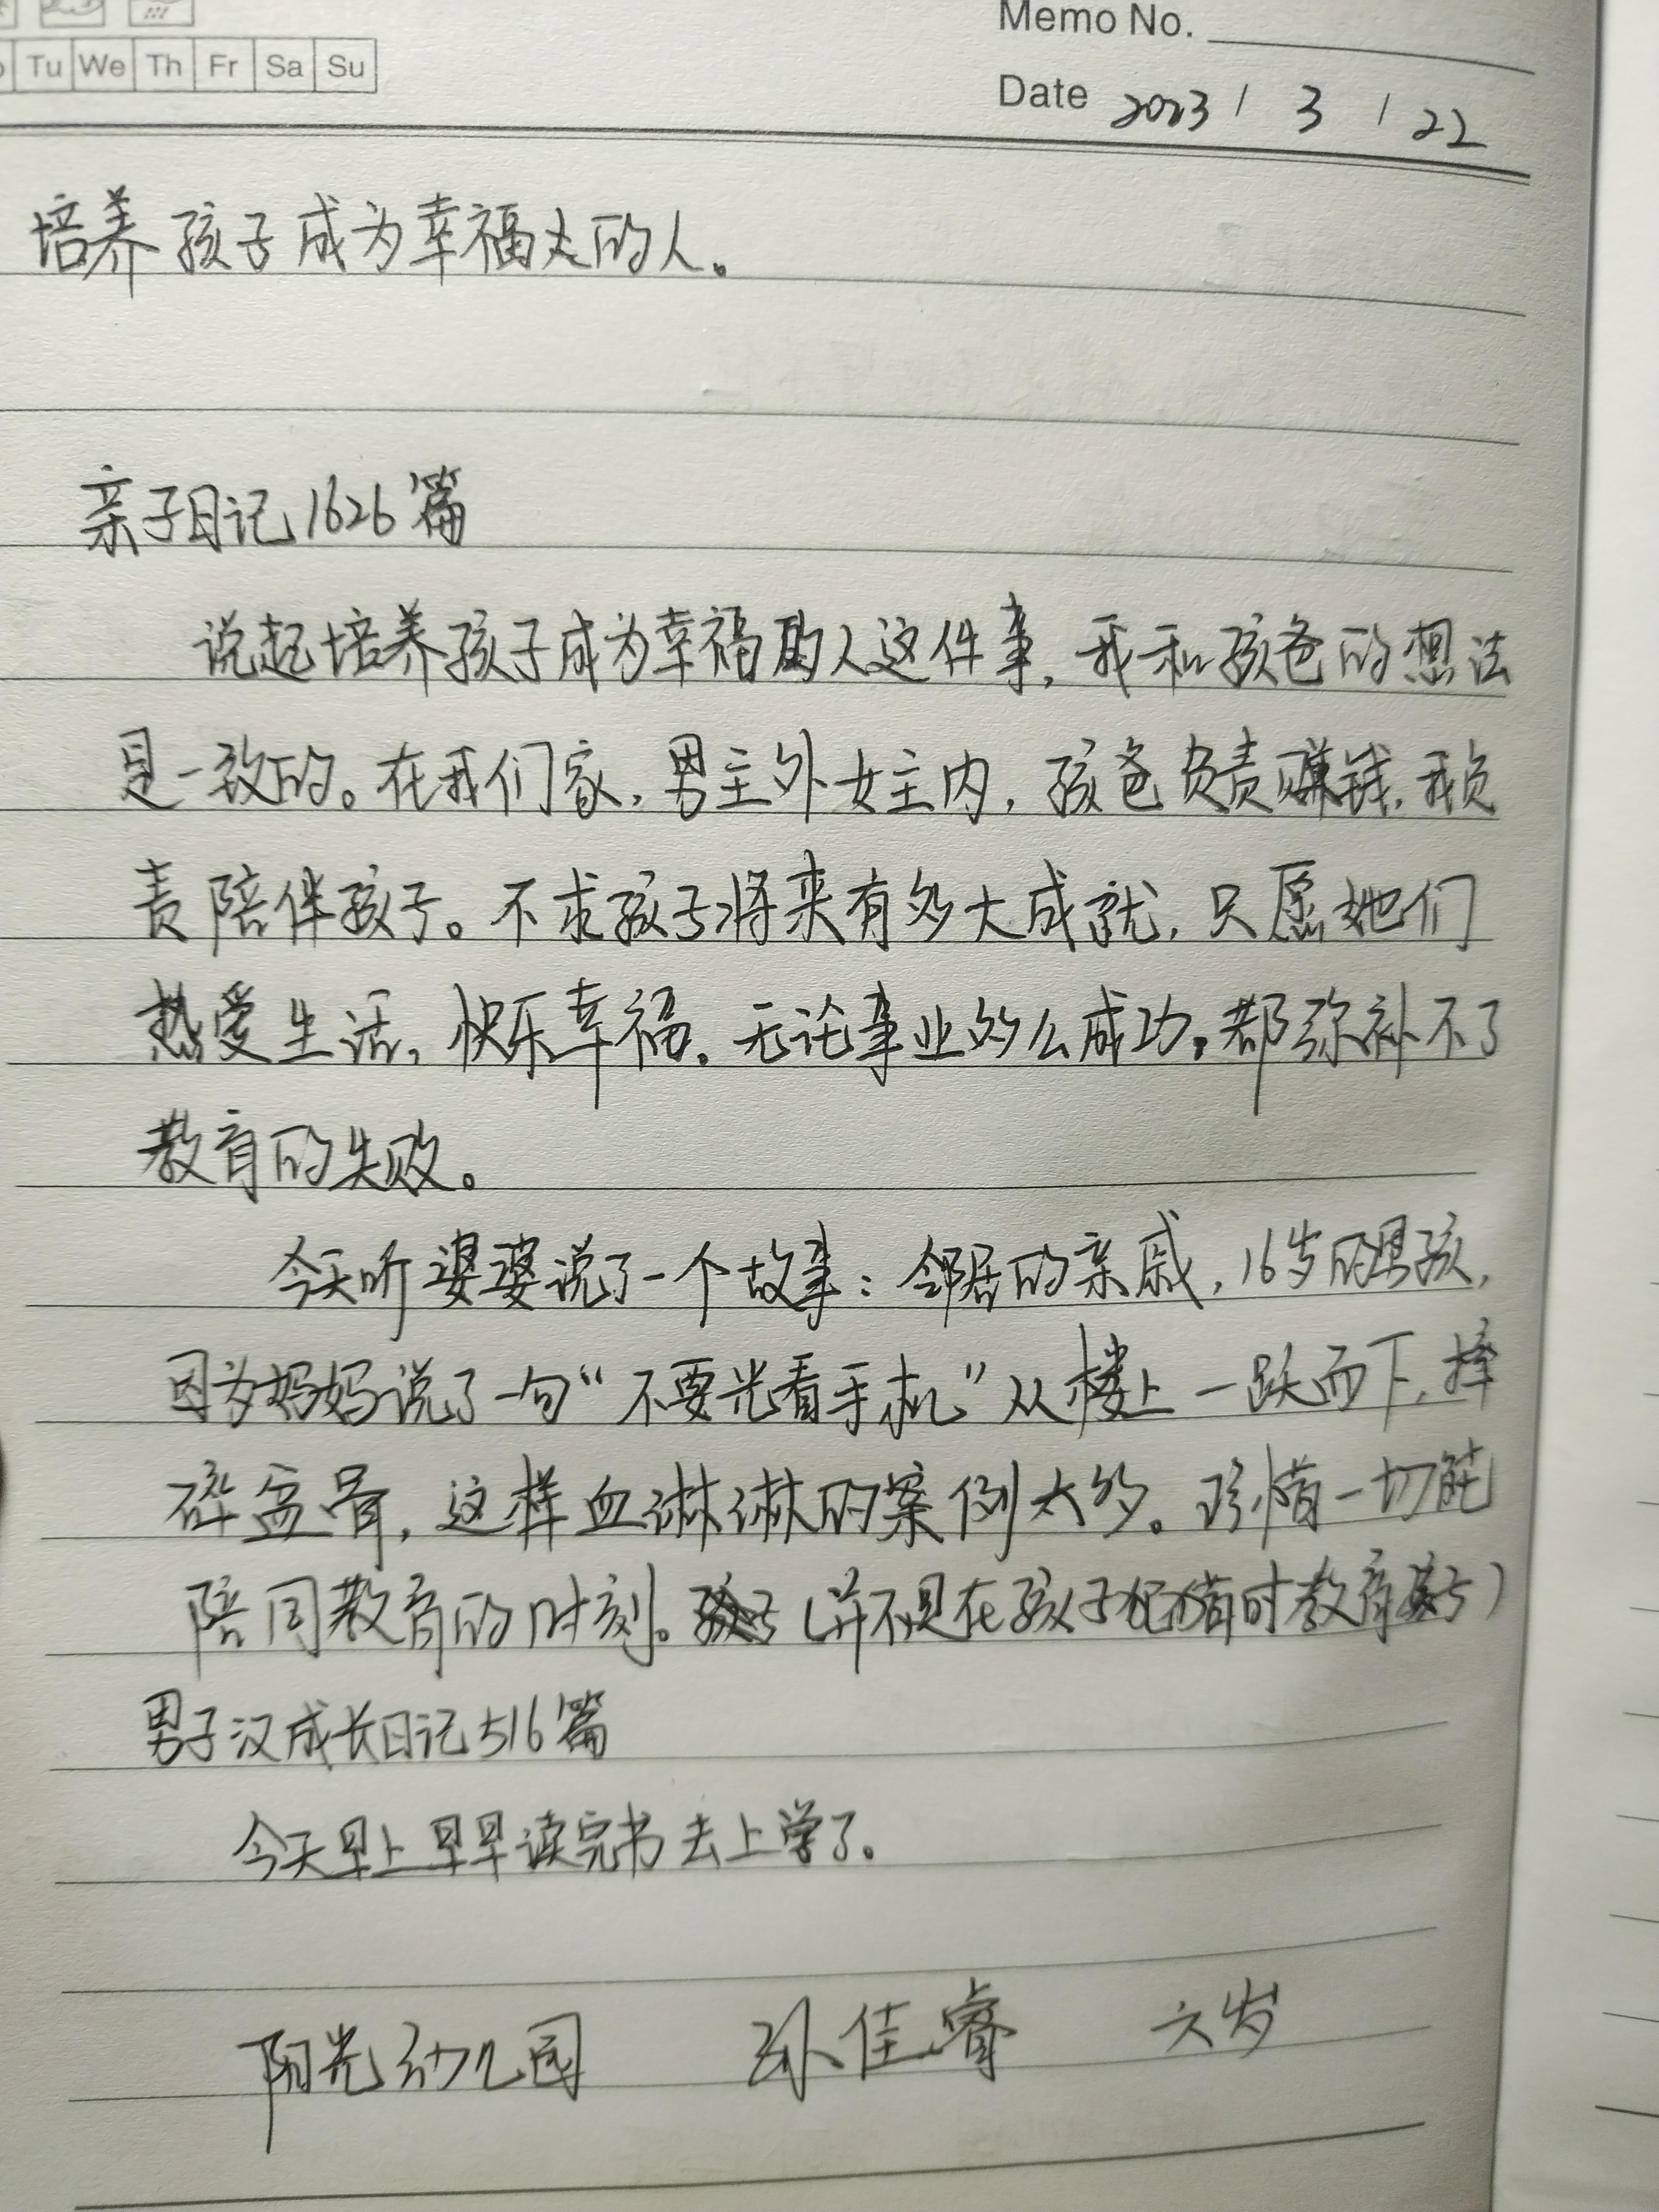 Memo No.
Tu We Th Fr Sa Su
Date 2023 / 3 / 22
培养孩子成为幸福的人。
亲子日记1626篇
说起培养孩子成为幸福的人这件事，我和孩爸的想法
是一致的。在我们家，男主外女主内，孩爸负责赚钱，我负
责陪伴孩子。不求孩子将来有多大成就，只愿她们
热爱生活，快乐幸福。无论事业多么成功，都弥补不了
教育的失败。
今天听婆婆说了一个故事：邻居的亲戚，16岁的男孩，
因为妈妈说了一句“不要光看手机”从楼上一跃而下，摔
碎盆骨，这样血淋淋的案例太多。珍惜一切能
陪同教育的时刻。（并不是在孩子犯错时教育孩子）
男子汉成长日记516篇
今天早上早早读完书去上学了。
阳光幼儿园 孙佳睿 六岁